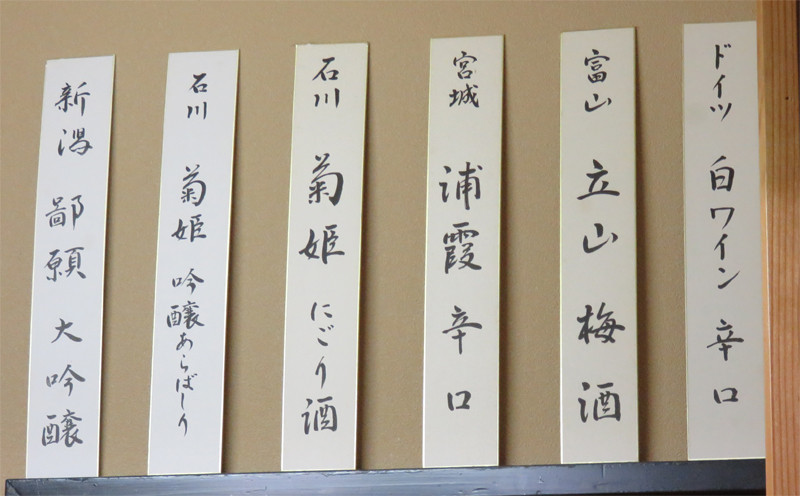 ドイツ 白ワイン 辛口
富山 立山 梅酒
宮城 浦霞 辛口
石川 菊姫 にごり酒
石川 菊姫 吟醸あらばしり
新潟 鄙願 大吟醸